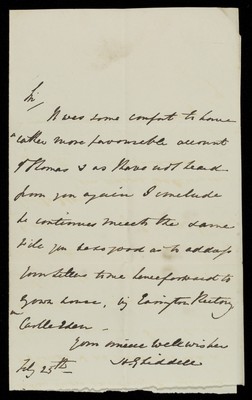 Sir,
It was some comfort to have
a rather more favourable account
of Thomas & as I have not heard
from you again I conclude
he continues much the same
Will you be so good as to address
your letters to me henceforward to
your house, viz Easington Rectory
Castle Eden –
Your sincere Wellwisher
H G Liddell
July 25th